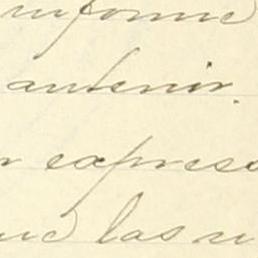 informe
anterior.
r expreso
ue las n